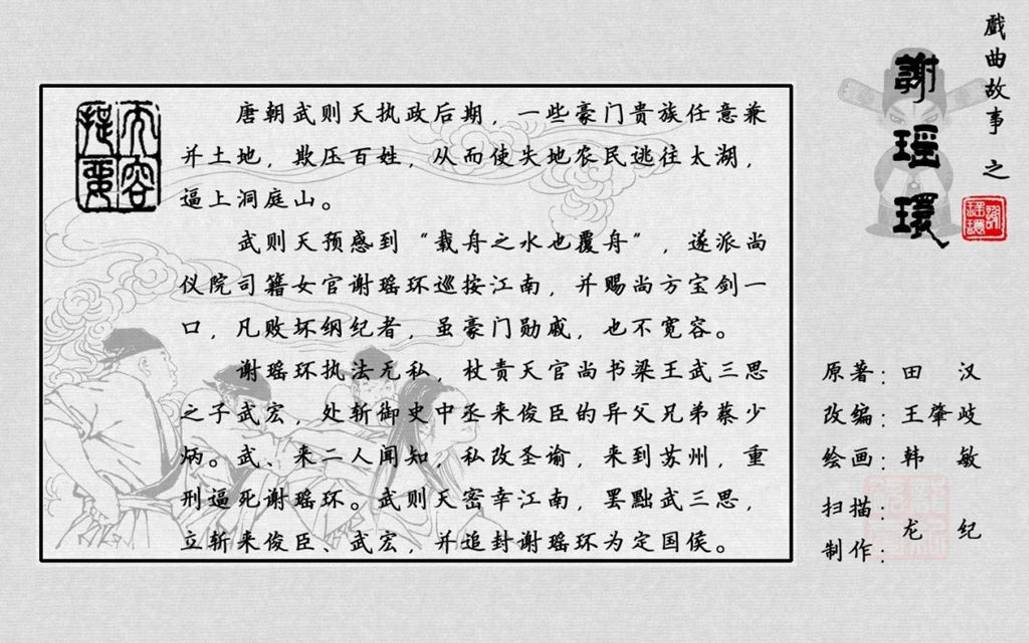 戲曲故事之
謝瑶環
内容提要
唐朝武则天执政后期，一些豪门贵族任意兼
并土地，欺压百姓，从而使失地农民逃往太湖，
逼上洞庭山。
武则天预感到“载舟之水也覆舟”，遂派尚
仪院司籍女官谢瑶环巡按江南，并赐尚方宝剑一
口，凡败坏纲纪者，虽豪门勋戚，也不宽容。
谢瑶环执法无私，杖责天官尚书梁王武三思
之子武宏，处斩御史中丞来俊臣的异父兄弟蔡少
炳。武、来二人闻知，私改圣谕，来到苏州，重
刑逼死谢瑶环。武则天密幸江南，罢黜武三思，
立斩来俊臣、武宏，并追封谢瑶环为定国侯。
原著：田 汉
改编：王肇歧
绘画：韩 敏
扫描：
制作：龙 纪